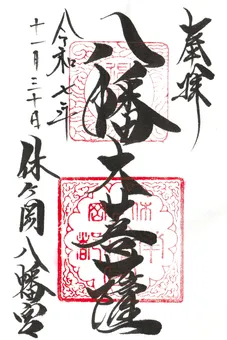 奉拝
八幡大菩薩
令和七年
十一月三十日
休ヶ岡八幡宮